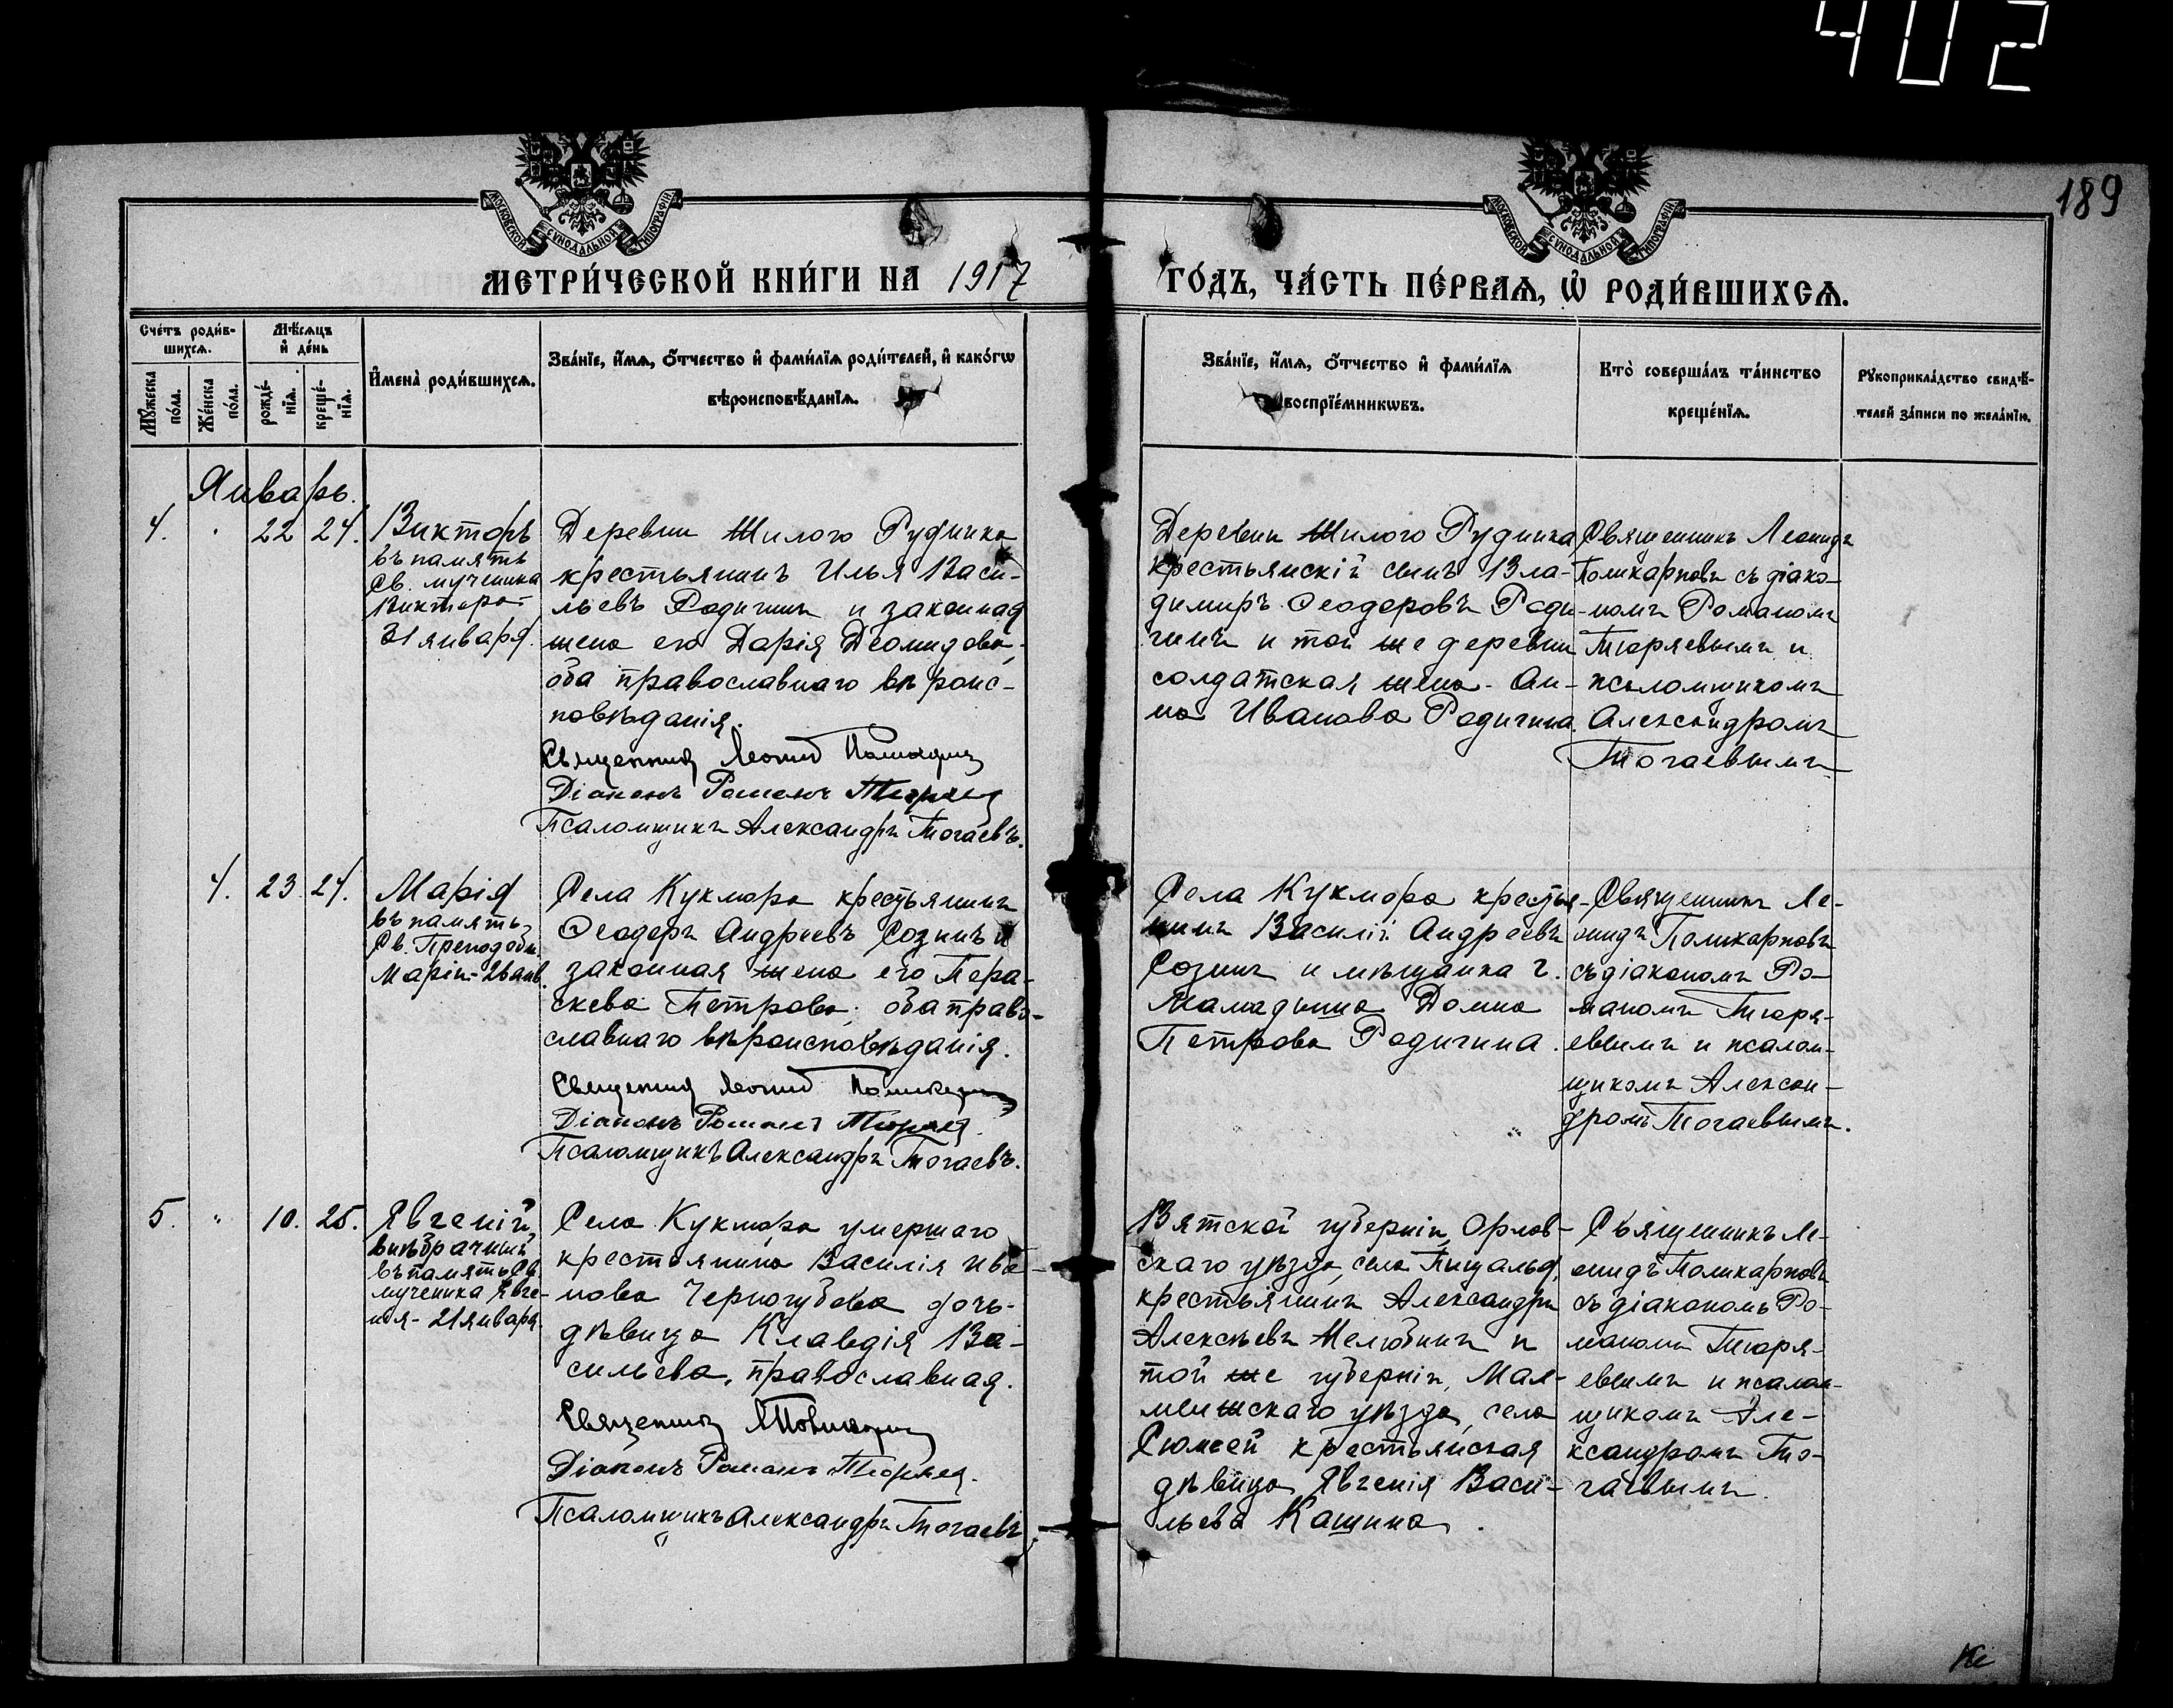 402
189
МОСКОВСКОЙ СѴНОДАЛЬНОЙ ТИПОГРАФІИ
МОСКОВСКОЙ СѴНОДАЛЬНОЙ ТИПОГРАФІИ
МЕТРИ́ЧЕСКОЙ КНИ́ГИ НА 1917
ГО́ДЪ, ЧА́СТЬ ПЕ́РВАѦ, Ѡ҆ РОДИ́ВШИХСѦ.
Сче́тъ роди́в-
шихсѧ.
Мꙋ́жеска
по́ла.
Же́нска
по́ла.
Мѣ́сѧцъ
и҆ де́нь
рожде́-
нїѧ.
креще́-
нїѧ.
И҆мена̀ роди́вшихсѧ.
Зва́нїе, и҆́мѧ, ѻ҆́тчество и҆ фами́лїѧ роди́телей, и҆ како́гѡ
вѣроисповѣ́данїѧ.
Зва́нїе, и҆́мѧ, ѻ҆́тчество и҆ фами́лїѧ
воспрїе́мникѡвъ.
Кто̀ соверша́лъ та́инство
креще́нїѧ.
Рꙋкоприкла́дство свидѣ́-
телей за́писи по жела́нїю.
Январь.
4. " 22 24.
Викторъ
въ память
Св. мученика
Виктора
31 января.
Деревни Шилого Рудника
крестьянинъ Илья Васи-
льевъ Родигинъ и законная
жена его Дарія Деомидова,
оба православнаго вѣроис-
повѣданія.
Священникъ Леонид Поликарпов
Діаконъ Романъ Тюряев
Псаломщикъ Александръ Тогаевъ.
Деревни Шилого Рудника
крестьянскій сынъ Вла-
димиръ Ѳеодоровъ Роди-
гинъ и той же деревни
солдатская жена Ан-
на Иванова Родигина.
Священникъ Леонидъ
Поликарповъ съ діако-
номъ Романомъ
Тюряевымъ и
псаломщикомъ
Александромъ
Тогаевымъ
4. 23. 24.
Марія
въ память
Св. Преподобн.
Маріи - 26 янв.
Села Кукмора крестьянинъ
Ѳеодоръ Андреевъ Созинъ и
законная жена его Пара-
скева Петрова; оба право-
славнаго вѣроисповѣданія.
Священникъ Леонид Поликарпов
Діаконъ Романъ Тюряев.
Псаломщикъ Александръ Тогаевъ.
Села Кукмора крестья-
нинъ Василій Андреевъ
Созинъ и мѣщанка г.
Мамадыша Домна
Петрова Родигина.
Священникъ Ле-
онидъ Поликарповъ
съ діакономъ Ро-
маномъ Тюря-
евымъ и псалом-
щикомъ Алексан-
дромъ Тогаевымъ.
5. " 10. 25.
Явгеній
внѣбрачный
въ память Св.
мученика Явге-
нія - 21 января.
Села Кукмора умершаго
крестьянина Василія Ива-
нова Черногубова дочь-
дѣвица Клавдія Ва-
сильева, православная.
Священникъ Л Поликарпов
Діаконъ Романъ Тюряев.
Псаломщикъ Александръ Тогаевъ
Вятской губерніи, Орлов-
скаго уѣзда, села Пищалья,
крестьянинъ Александръ
Алексѣевъ Мелюбинъ и
той же губерніи, Мал-
мыжскаго уѣзда, села
Сюмсей крестьянская
дѣвица Явгенія Васи-
льева Кашина.
Священникъ Ле-
онидъ Поликарповъ
съ діакономъ Ро-
маномъ Тюря-
евымъ и псалом-
щикомъ Але-
ксандромъ То-
гаевымъ.